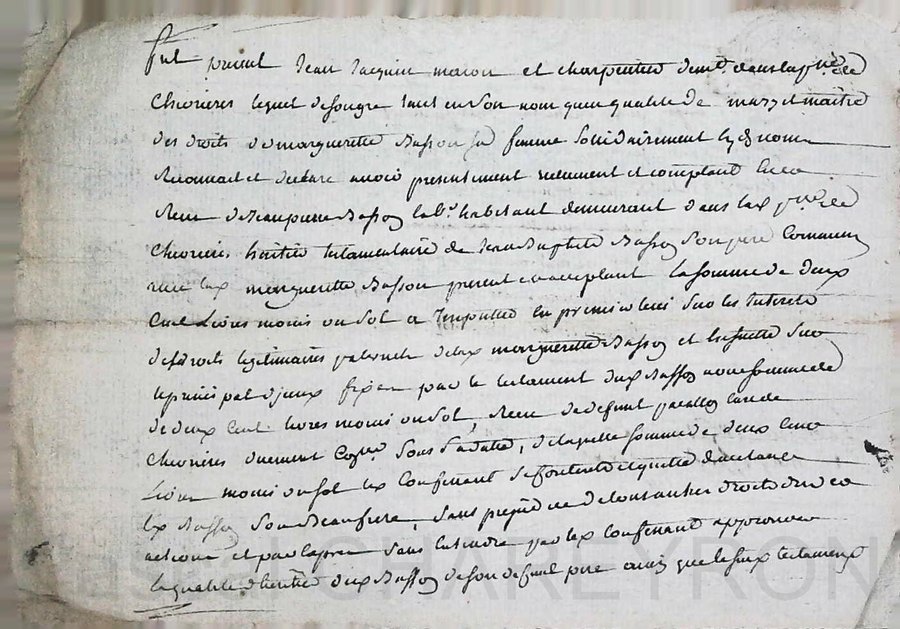 fut present Jean Jacques mason et charpentier demt. dans la prre. de
Chevrieres lequel de son gre tant en son nom qu'en qualité de mary et maitre
des droits de margueritte Basson sa femme solidairement
Reconnoit et declare avoir presentement reellement et comptant
Receu de Jean pierre Basson labr. habitant demeurant dans lad. prre. de
Chevrieres heritier testamentaire de Jean Baptiste Basson son pere commun
avec lad. margueritte Basson present et acceptant la somme de deux
Cent Livres moins un sol a Imputter en premier lieu sur les Interets
des droits legitimaires paternels de lad. marguerite Basson et ensuitte sur
le principal d'iceux fixes par le testament dud. Basson
de deux Cent livres moins un sol, Receu de deffunt
Chevrieres duement sous sa datte, de laquelle somme de deux Cent
Livres moins un sol led. Confessant se contente et quitte
led. Basson son Beaufrere, sans prejudice de tous autres droits
actions et par expres sans entendre par led. Confessant approuver
la qualité d'heritier dud. Basson de son deffunt pere ainsi que led. testament
CHAREYRON